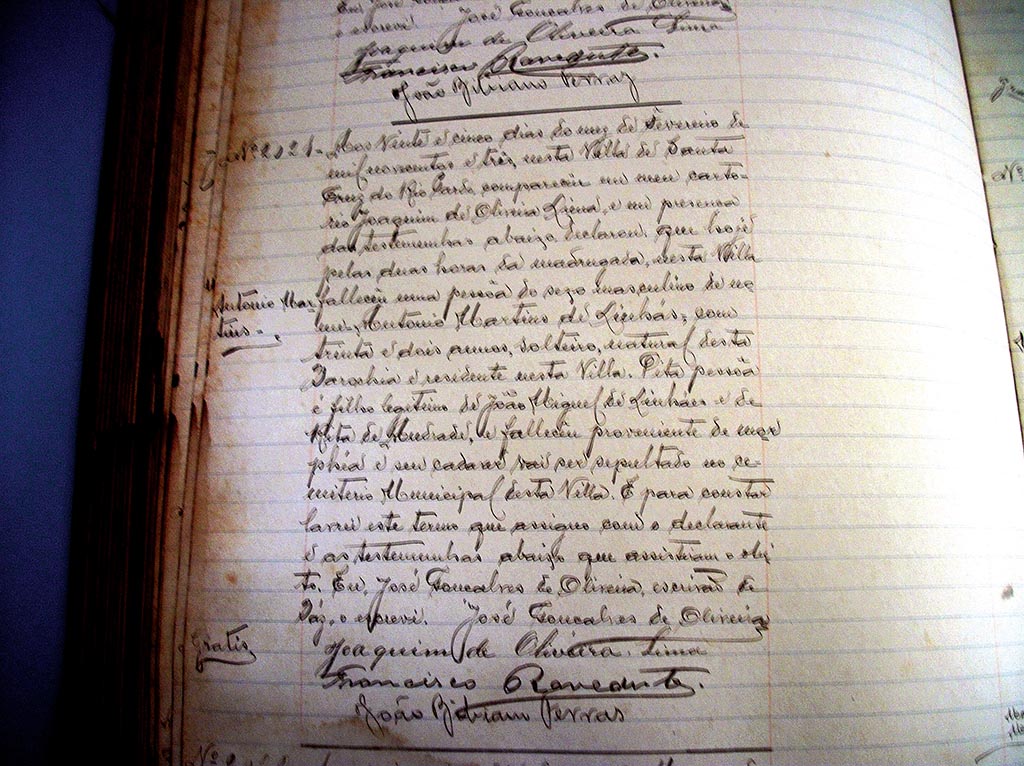 Eu, José Gonçalves de Oliveira
o escrevi. José Gonçalves de Oliveira
Joaquim de Oliveira Lima
Francisco Benedicto.
João Bibiano Ferraz
Nº 2121- Aos Vinte e cinco dias do mez de Fevereiro de
mil novecentos e trez, nesta Villa de Santa
Cruz do Rio Pardo compareceu em meu carto-
rio Joaquim de Oliveira Lima, e em presença
das testemunhas abaixo, declarou, que hoje
pelas duas horas da madrugada, nesta Villa
Antonio Mar
tins-
falleceu uma pessoa do sexo masculino de no
me Antonio Martins de Linhás, com
trinta e dois annos, solteiro, natural desta
Parochia e residente nesta Villa. Dita pessoa
é filho legitimo de João Miguel de Linhás e de
Rita de Andrade, e falleceu proveniente de mor
phéa e seu cadaver vai ser sepultado no ce-
miterio Municipal desta Villa. E para constar
lavrei este termo que assigno com o declarante
e as testemunhas abaixo que assistiram o obi-
to. Eu, José Goncalves de Oliveira, escrivão de
Páz, o escrevi. José Goncalves de Oliveira
Gratis
Joaquim de Oliveira Lima
Francisco Benedicto.
João Bibiano Ferras
Nº 2